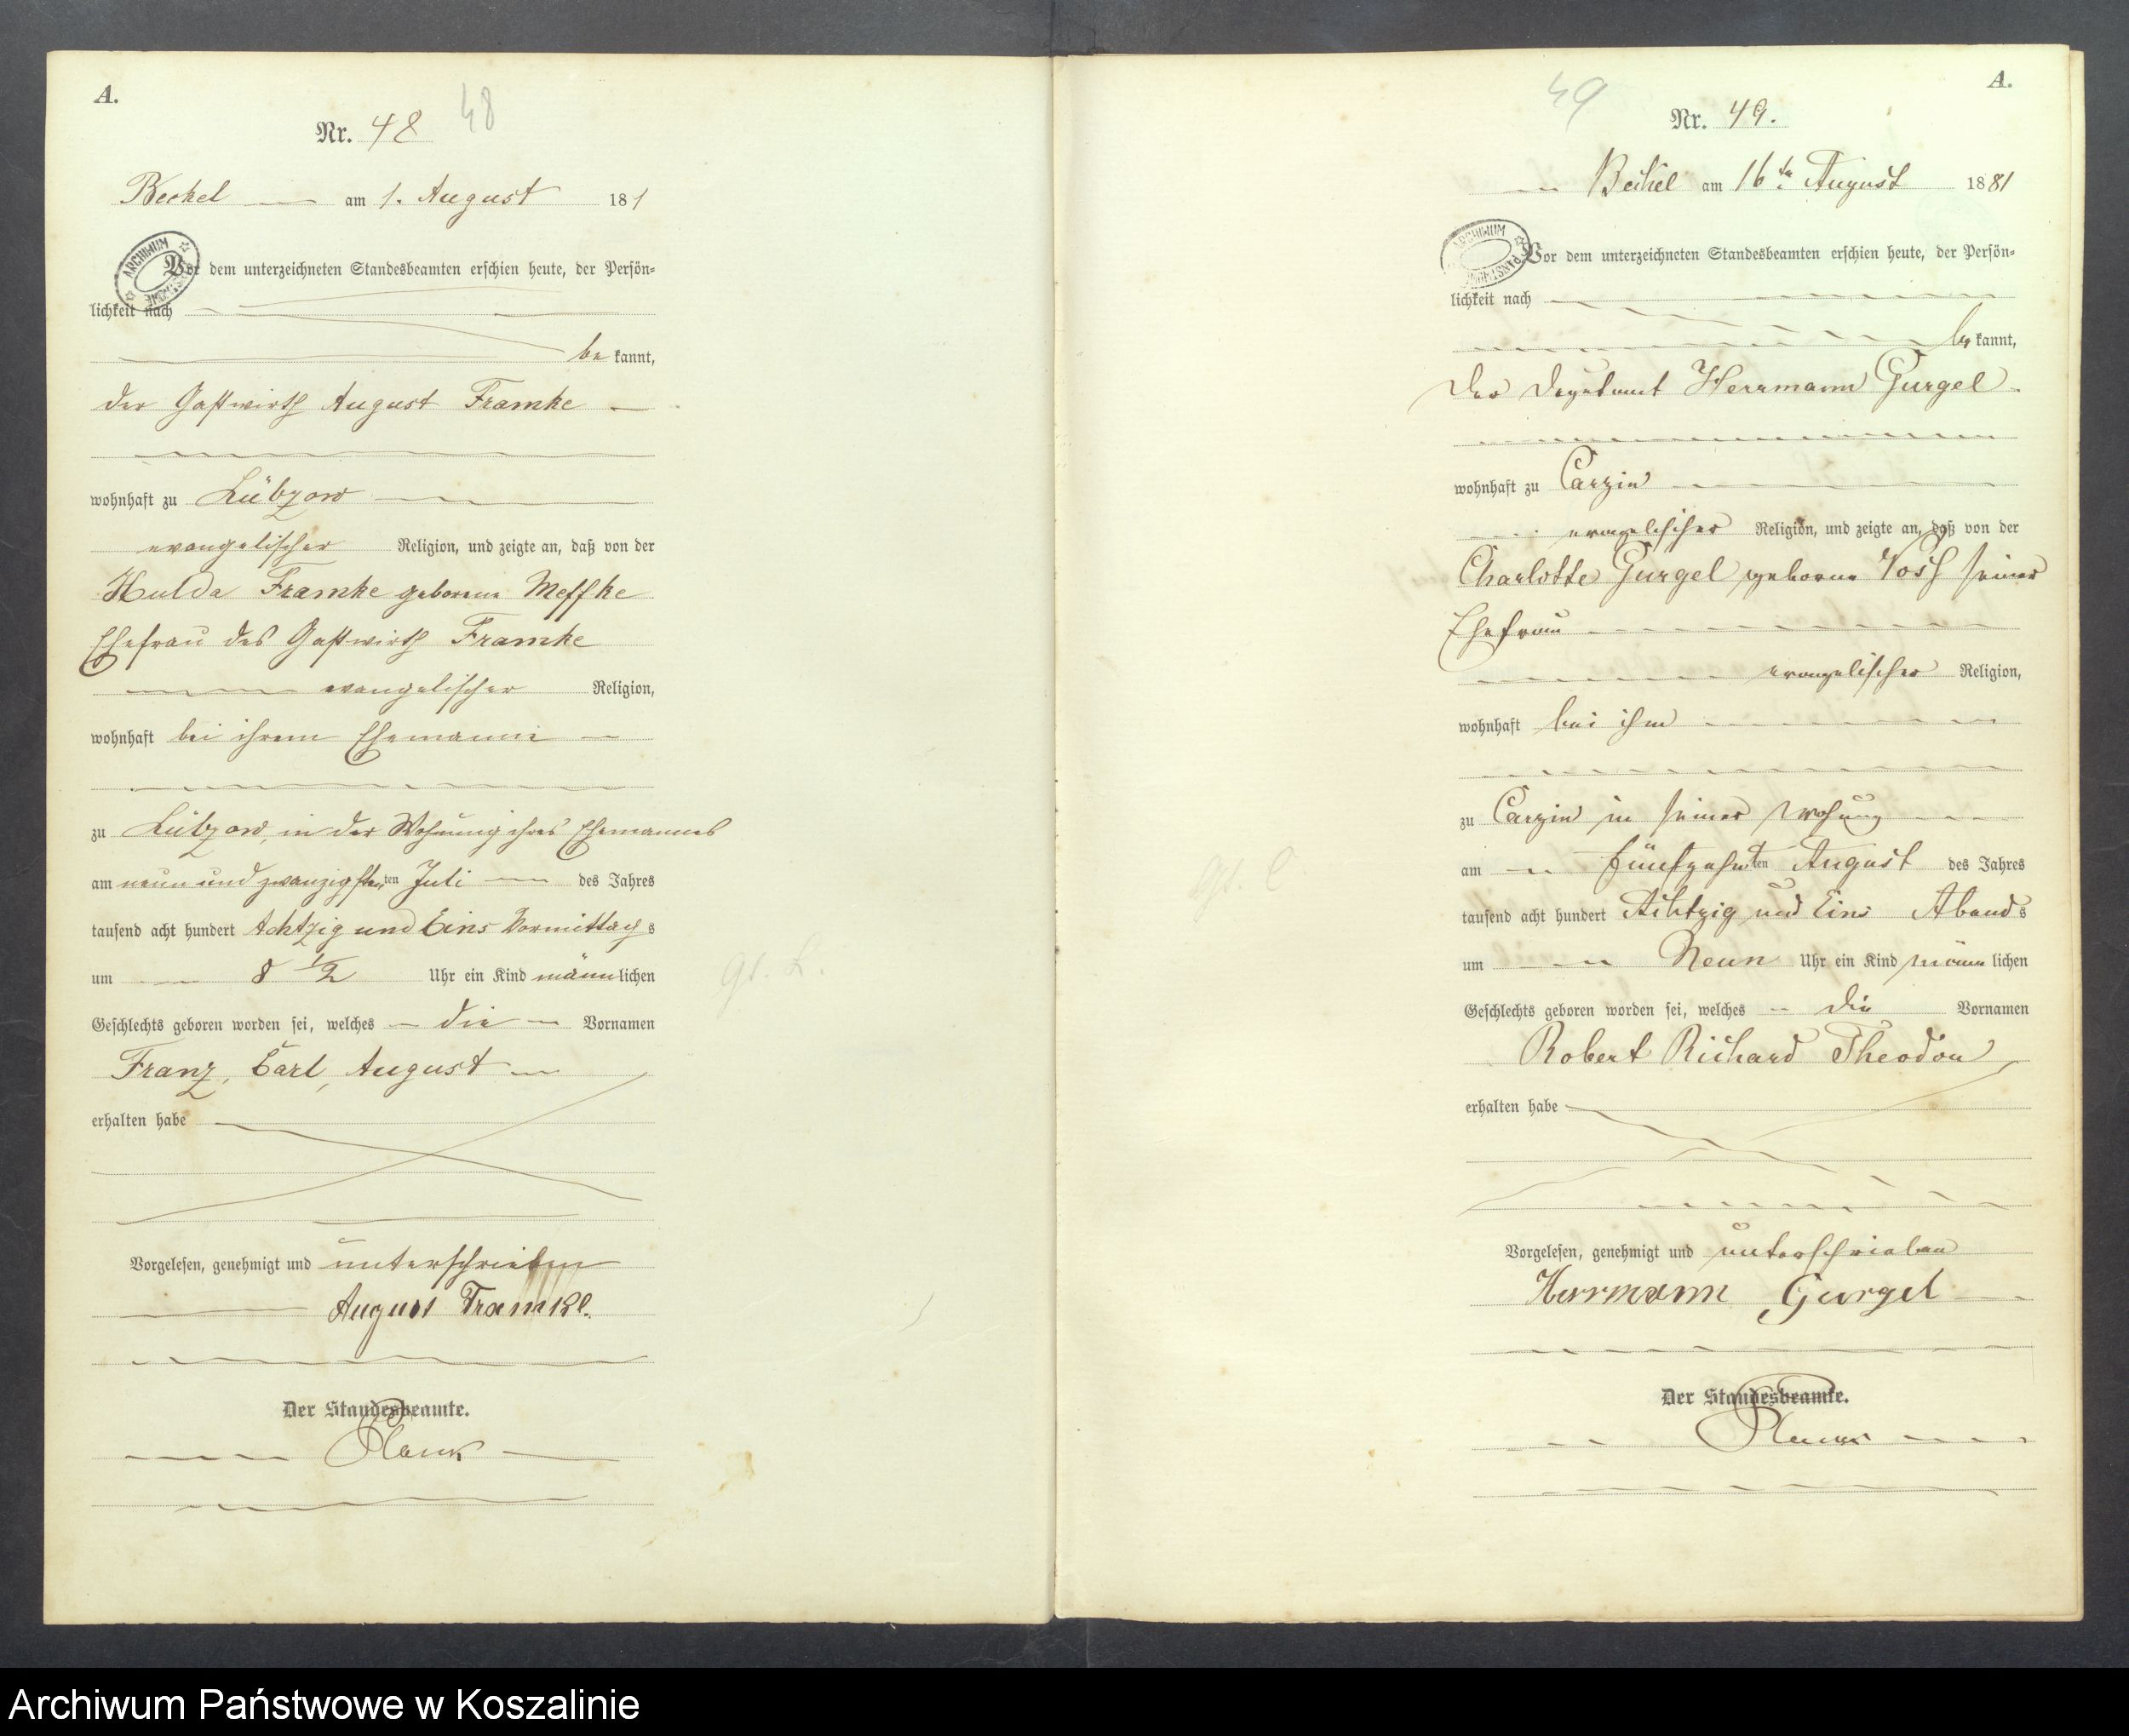 A.
Nr. 48 48
Beckel am 1. August 181
ARCHIWUM
Vor dem unterzeichneten Standesbeamten erschien heute, der Persön-
lichkeit nach
be kannt,
der Gastwirth August Framke
wohnhaft zu Lübzow
evangelischer Religion, und zeigte an, daß von der
Hulda Framke geborene Meffke
Ehefrau des Gastwirth Framke
evangelischer Religion,
wohnhaft bei ihrem Ehemanne
zu Lübzow, in der Wohnung ihres Ehemannes
am neun und zwanzigsten ten Juli des Jahres
tausend acht hundert Achtzig und Eins Vormittag s
um 8 ½ Uhr ein Kind männ lichen
Geschlechts geboren worden sei, welches die Vornamen
Franz, Carl, August
erhalten habe
Vorgelesen, genehmigt und unterschrieben
August Framke.
Der Standesbeamte.
Plank
A.
49
Nr. 49.
Beckel am 16 August 1881
ARCHIWUM
Vor dem unterzeichneten Standesbeamten erschien heute, der Persön-
lichkeit nach
be kannt,
der Deputant Herrmann Gurgel
wohnhaft zu Carzin
evangelischer Religion, und zeigte an, daß von der
Charlotte Gurgel geborne Vosh seiner
Ehefrau
evangelischer Religion,
wohnhaft bei ihm
zu Carzin in seiner Wohung
am fünfzehn ten August des Jahres
tausend acht hundert Achtzig und Eins Abend s
um Neun Uhr ein Kind männ lichen
Geschlechts geboren worden sei, welches die Vornamen
Robert Richard Theodor
erhalten habe
Vorgelesen, genehmigt und unterschrieben
Herrmann Gurgel
Der Standesbeamte.
Plank
Archiwum Państwowe w Koszalinie